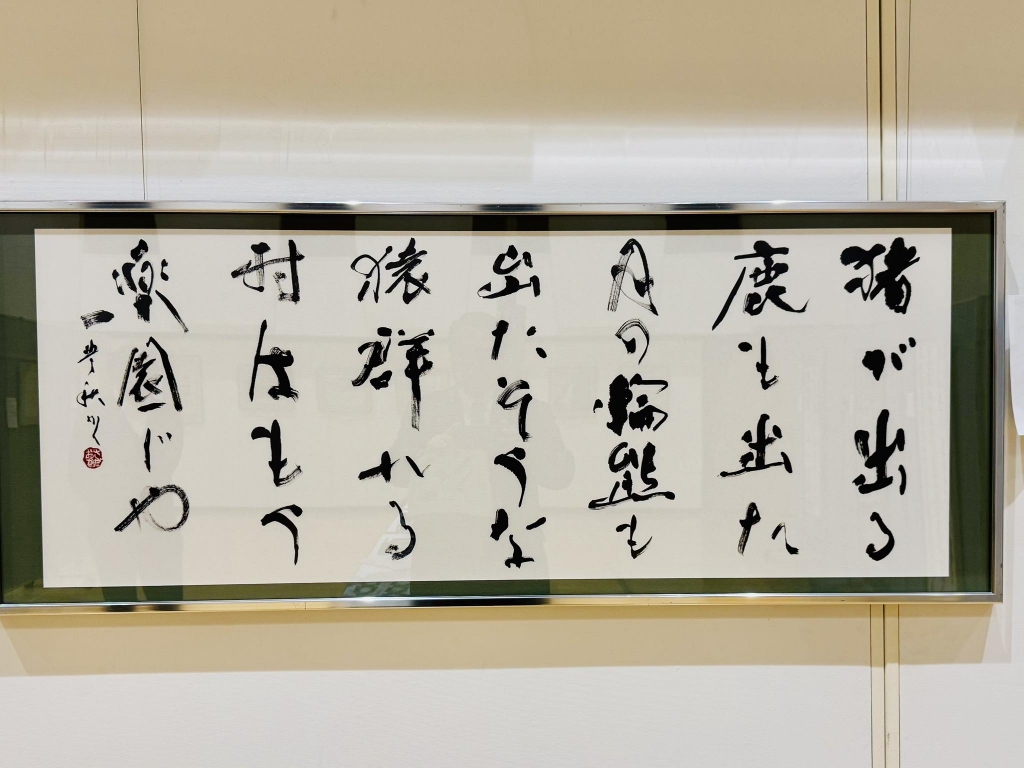 猪が出る
鹿も出た
月の輪熊も
出たそうな
猿群れる
村はもう
楽園じゃ